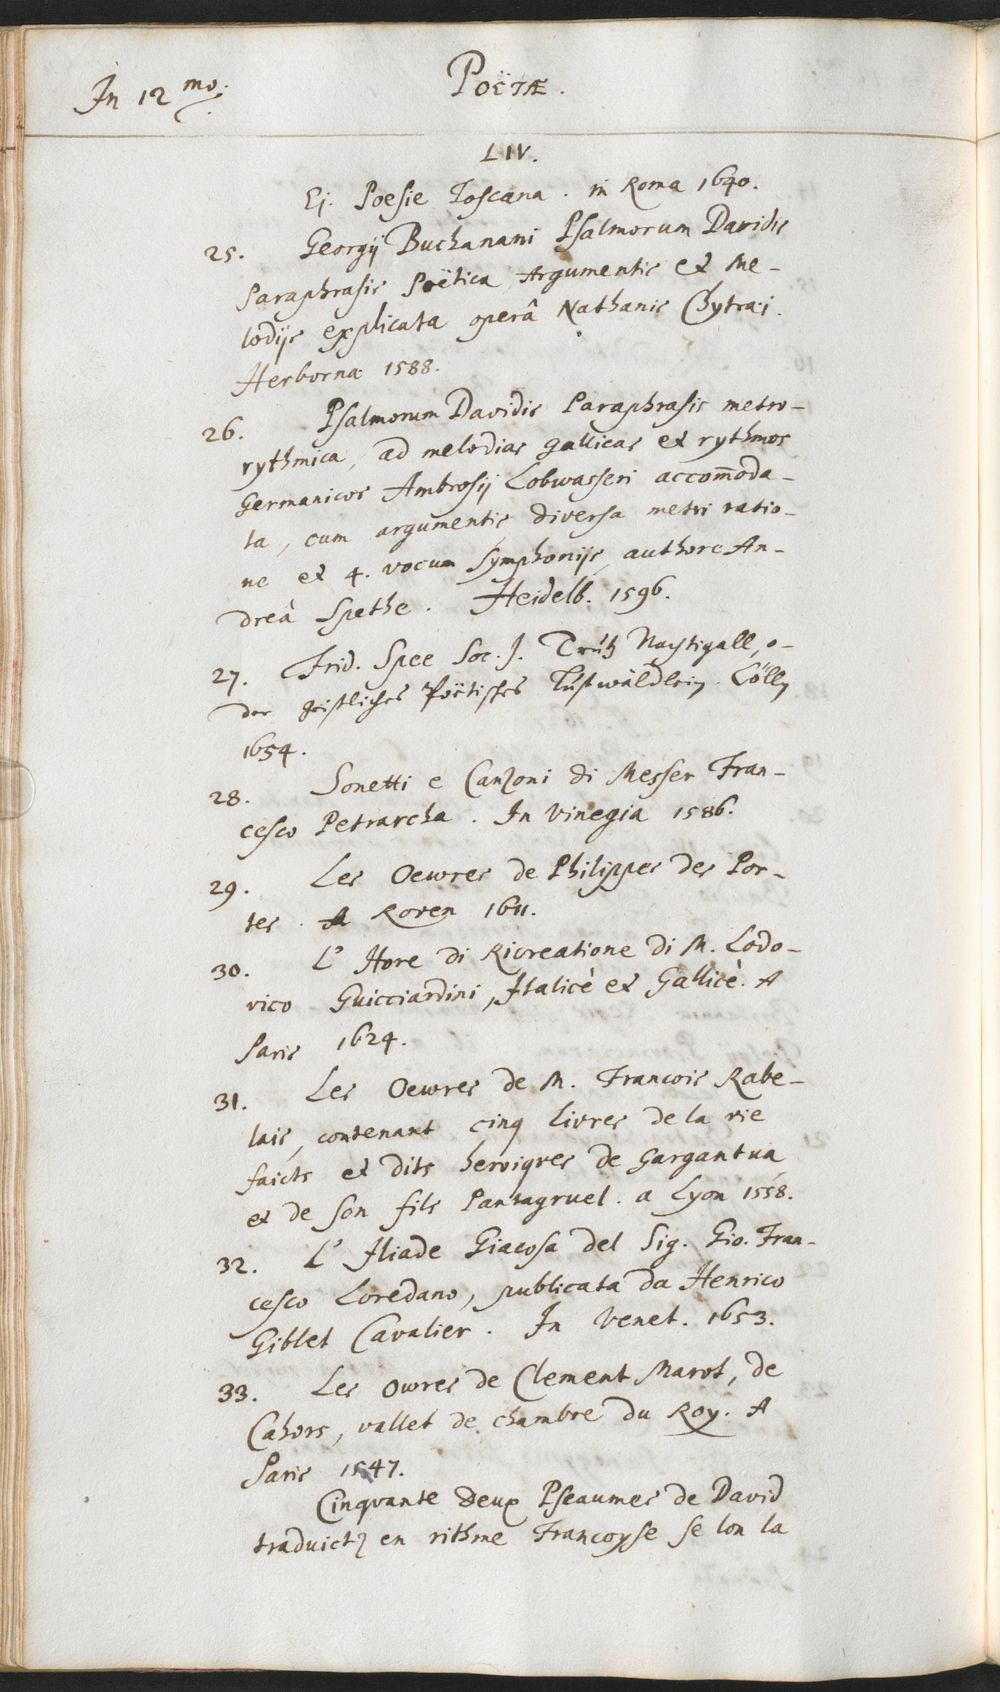 In 12 mo.
POËTÆ.
LIV.
Ej. Poesie Toscana. in Roma 1640.
25. Georgij Buchanani Psalmorum Davidis
Paraphrasis Poëtica, Argumentis et Me-
lodijs explicata operâ Nathanis Chytræi.
Herbornæ 1588.
26. Psalmorum Davidis Paraphrasis metro-
rythmica, ad melodias gallicas et rythmos
Germanicos Ambrosij Lobwasseri accom̄oda-
ta, cum argumentis, diversa metri ratio-
ne et 4. vocum Symphonijs, authore An-
dreâ Spethe. Heidelb. 1596.
27. Frid. Spee Soc. J. Trutz Nachtigall, o-
der geistliches Poëtisches Lustwäldlein. Cölln
1654.
28. Sonetti e Canzoni di Messer Fran-
cesco Petrarcha. In Vinegia 1586.
29. Les Oeuvres de Philippes des Por-
tes. A Roven 1611.
30. L' Hore di Ricreatione di M. Lodo-
vico Guicciardini, Italicè et Gallicè. A
Paris 1624.
31. Les Oeuvres de M. Francois Rabe-
lais, contenant cinq livres de la vie
faicts et dits heroiques de Gargantua,
et de son fils Pantagruel. a Lyon 1558.
32. L' Iliade Giacosa del Sig. Gio. Fran-
cesco Loredano, publicata da Henrico
Giblet Cavalier. In Venet. 1653.
33. Les Owres de Clement Marot, de
Cahors, vallet de chambre du Roy. A
Paris 1547.
Cinquante deux Pseaumes de David
traduictz en rithme Francoyse se lon la